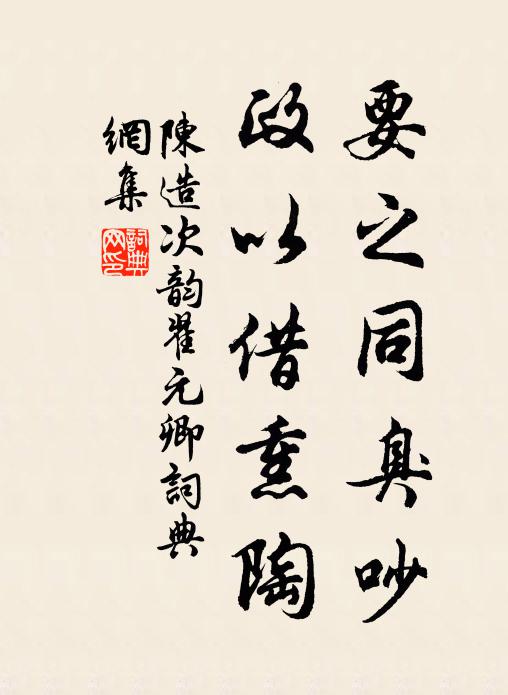 要之同臭吵
政以借熏陶
陳造次韵翟元卿詞典
網集
詞典網印